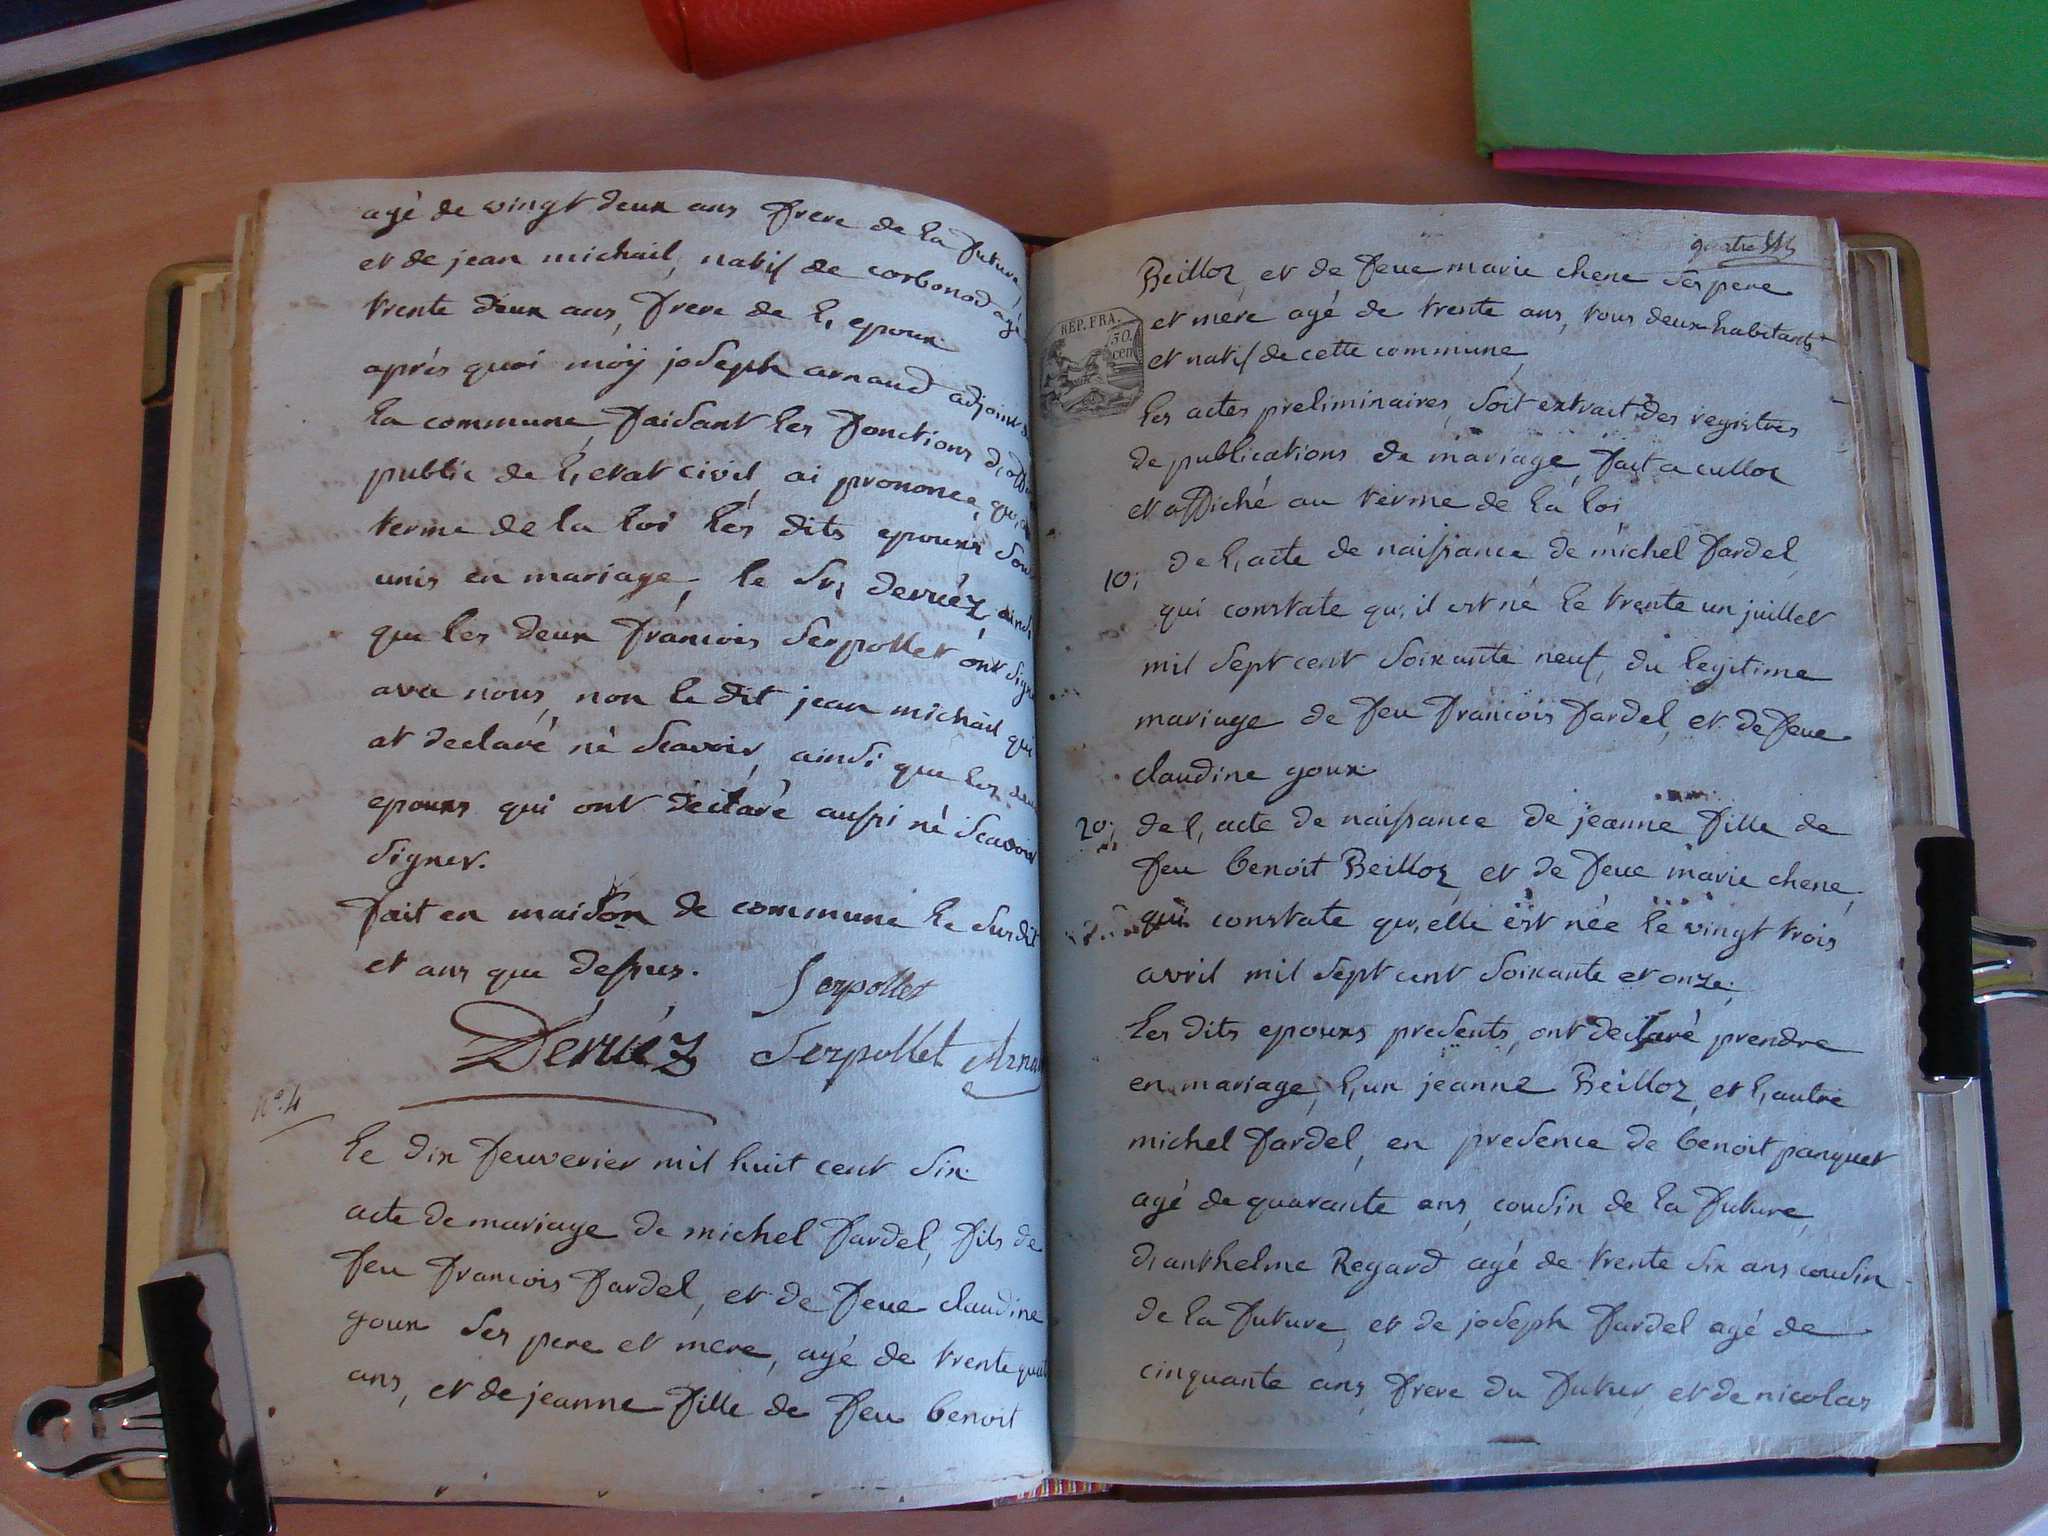 agé de vingt deux ans frere de la future,
et de jean michail, natif de corbonod agé
trente deux ans, frere de l, epoux
aprés quoi moÿ joseph arnaud adjoint
la commune, faisant les fonctions
public de l, etat civil, ai prononcé, qu,
terme de la loi lés dits epouxs
unis en mariage, le Sr, derriéz, ainsi
que les deux francois Serpollet ont
avec nous, non le dit jean michail qui
at declaré né scavoir, ainsi que les
epouxs qui ont declaré aussi né scavoir
signer.
fait en maison de commune le susdit
et ans que dessus.
Serpollet
Dérriéz Serpollet
N°. 4
le dix feuverier mil huit cent six
acte de mariage de michel fardel, fils de
feu francois fardel, et de feue claudine
goux ses pere et mere, agé de trente
ans, et de jeanne fille de feu benoit
quatre
REP. FRA.
50.
cen
Beilloz, et de feue marie chene ses pere
et mere agé de trente ans, tous deux habitants
et natif de cette commune,
les actes preliminaires, soit extrait des registres
de publications de mariage, fait a culloz
et affiché au terme de la loi
10; de l, acte de naissance de michel fardel,
qui constate qu, il est né le trente un juillet
mil sept cent soixante neuf, du legitime
mariage de feu francois fardel, et de feue
claudine goux
20; de l, acte de naissance de jeanne fille de
feu benoit Beilloz, et de feue marie chene,
qui constate qu, elle est née le vingt trois
avril mil sept cent soixante et onze,
les dits epouxs presents, ont declaré prendre
en mariage, l, un jeanne Beilloz, et l, autre
michel fardel, en presence de benoit panquet
agé de quarante ans, cousin de la future,
d, anthelme Regard agé de trente six ans cousin
de la future, et de joseph fardel agé de
cinquante ans, frere du futur, et de nicolas